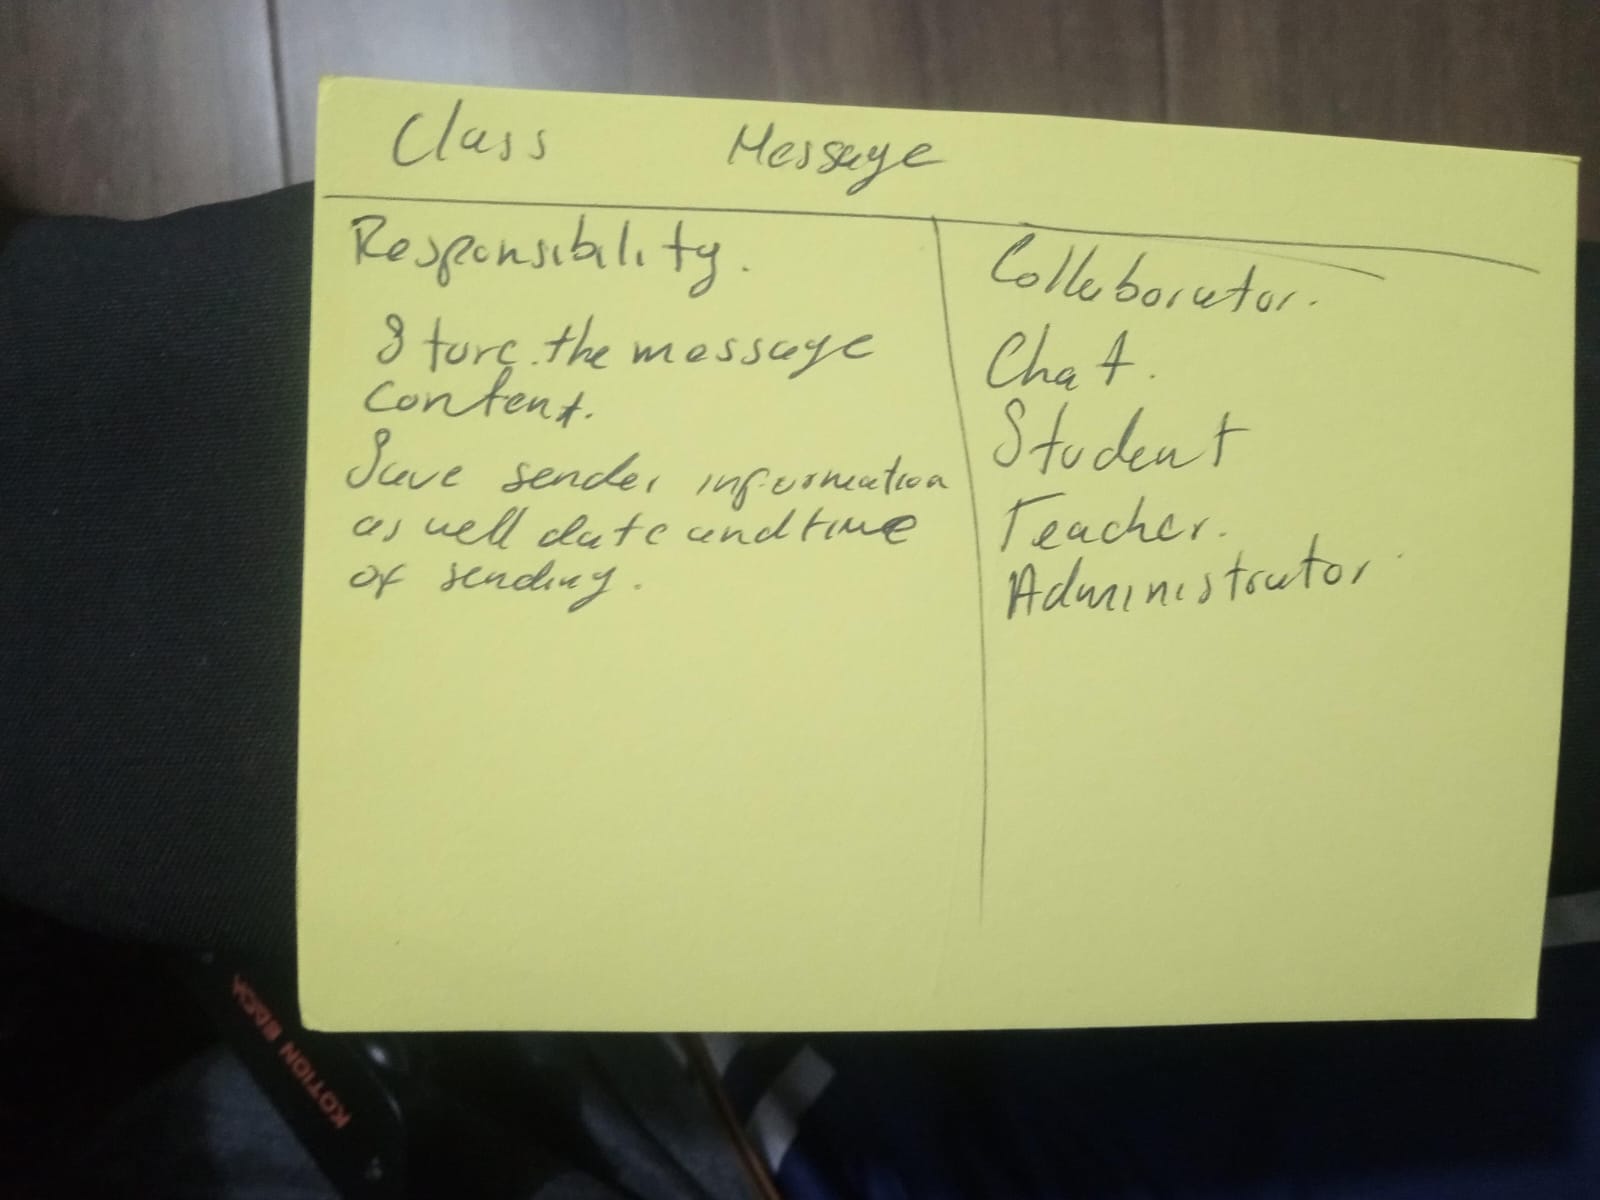 Class Message
Responsibility.
Store the message
content.
Save sender information
as well date and time
of sending.
Collaborator.
Chat.
Student
Teacher.
Administrator
KOTION EACH